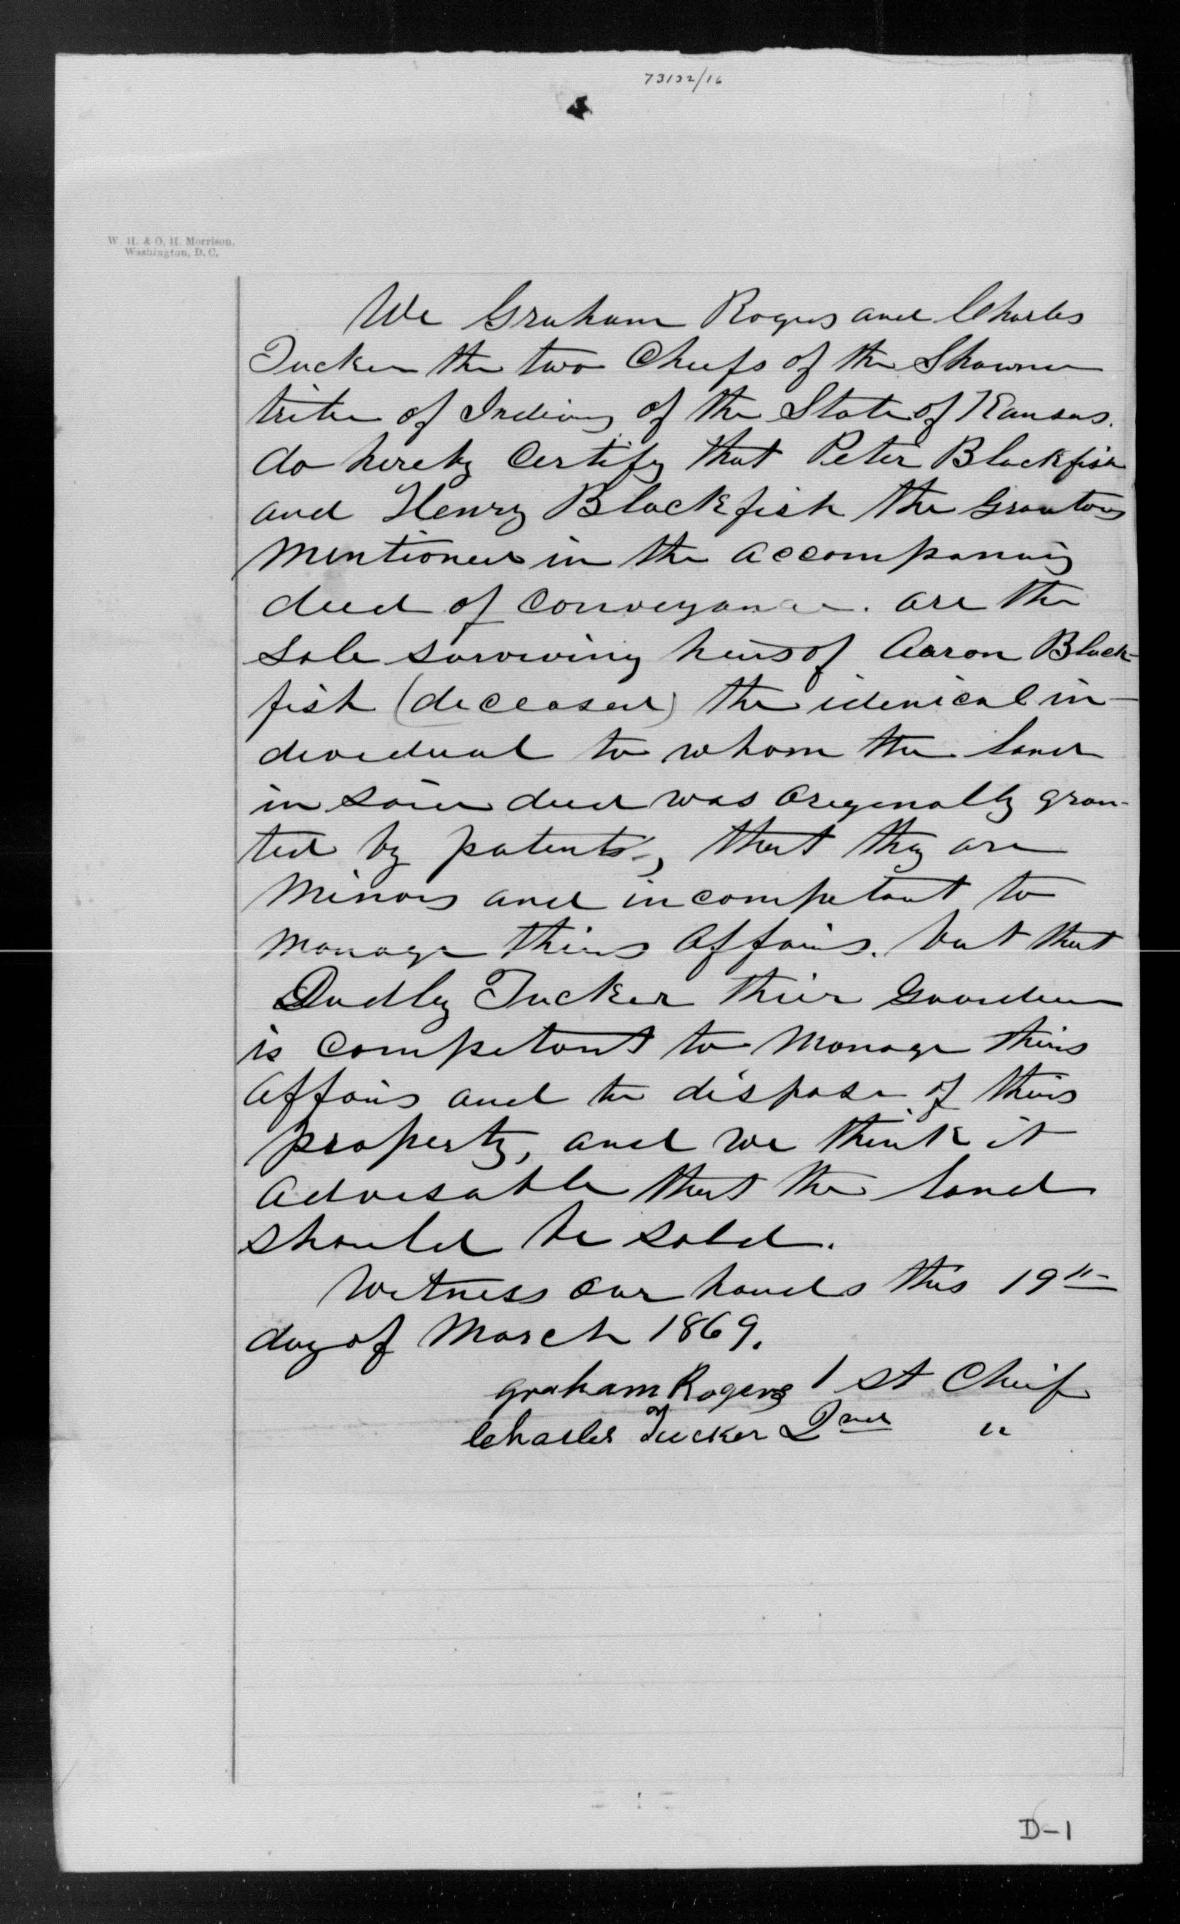 73132/16
W. H. & O. H. Morrison,
Washington, D. C.
We Graham Rogers and Charles
Tucker the two Cheefs of the Shawnee
tribe of Indians of the State of Kansas.
do hereby Certify that Peter Blackfish
and Henry Blackfish the Grantors
Mentioned in the accompaning
deed of Conveyance. are the
Sole surviving heirs of Aaron Black-
fish (deceased) the idenical in-
devidual to whom the land
in said deed was Oregenally gran-
ted by patents, that they are
Minors and incompetant to
manage theirs Affairs. but that
Dudley Tucker their Guardian
is Competant to Manage theirs
Affairs and to dispose of theirs
property, and we think it
Advisable that the land
should be sold.
Witness our hands this 19th
day of March 1869.
graham Rogers 1st Chief
Charles Tucker 2nd "
D-1